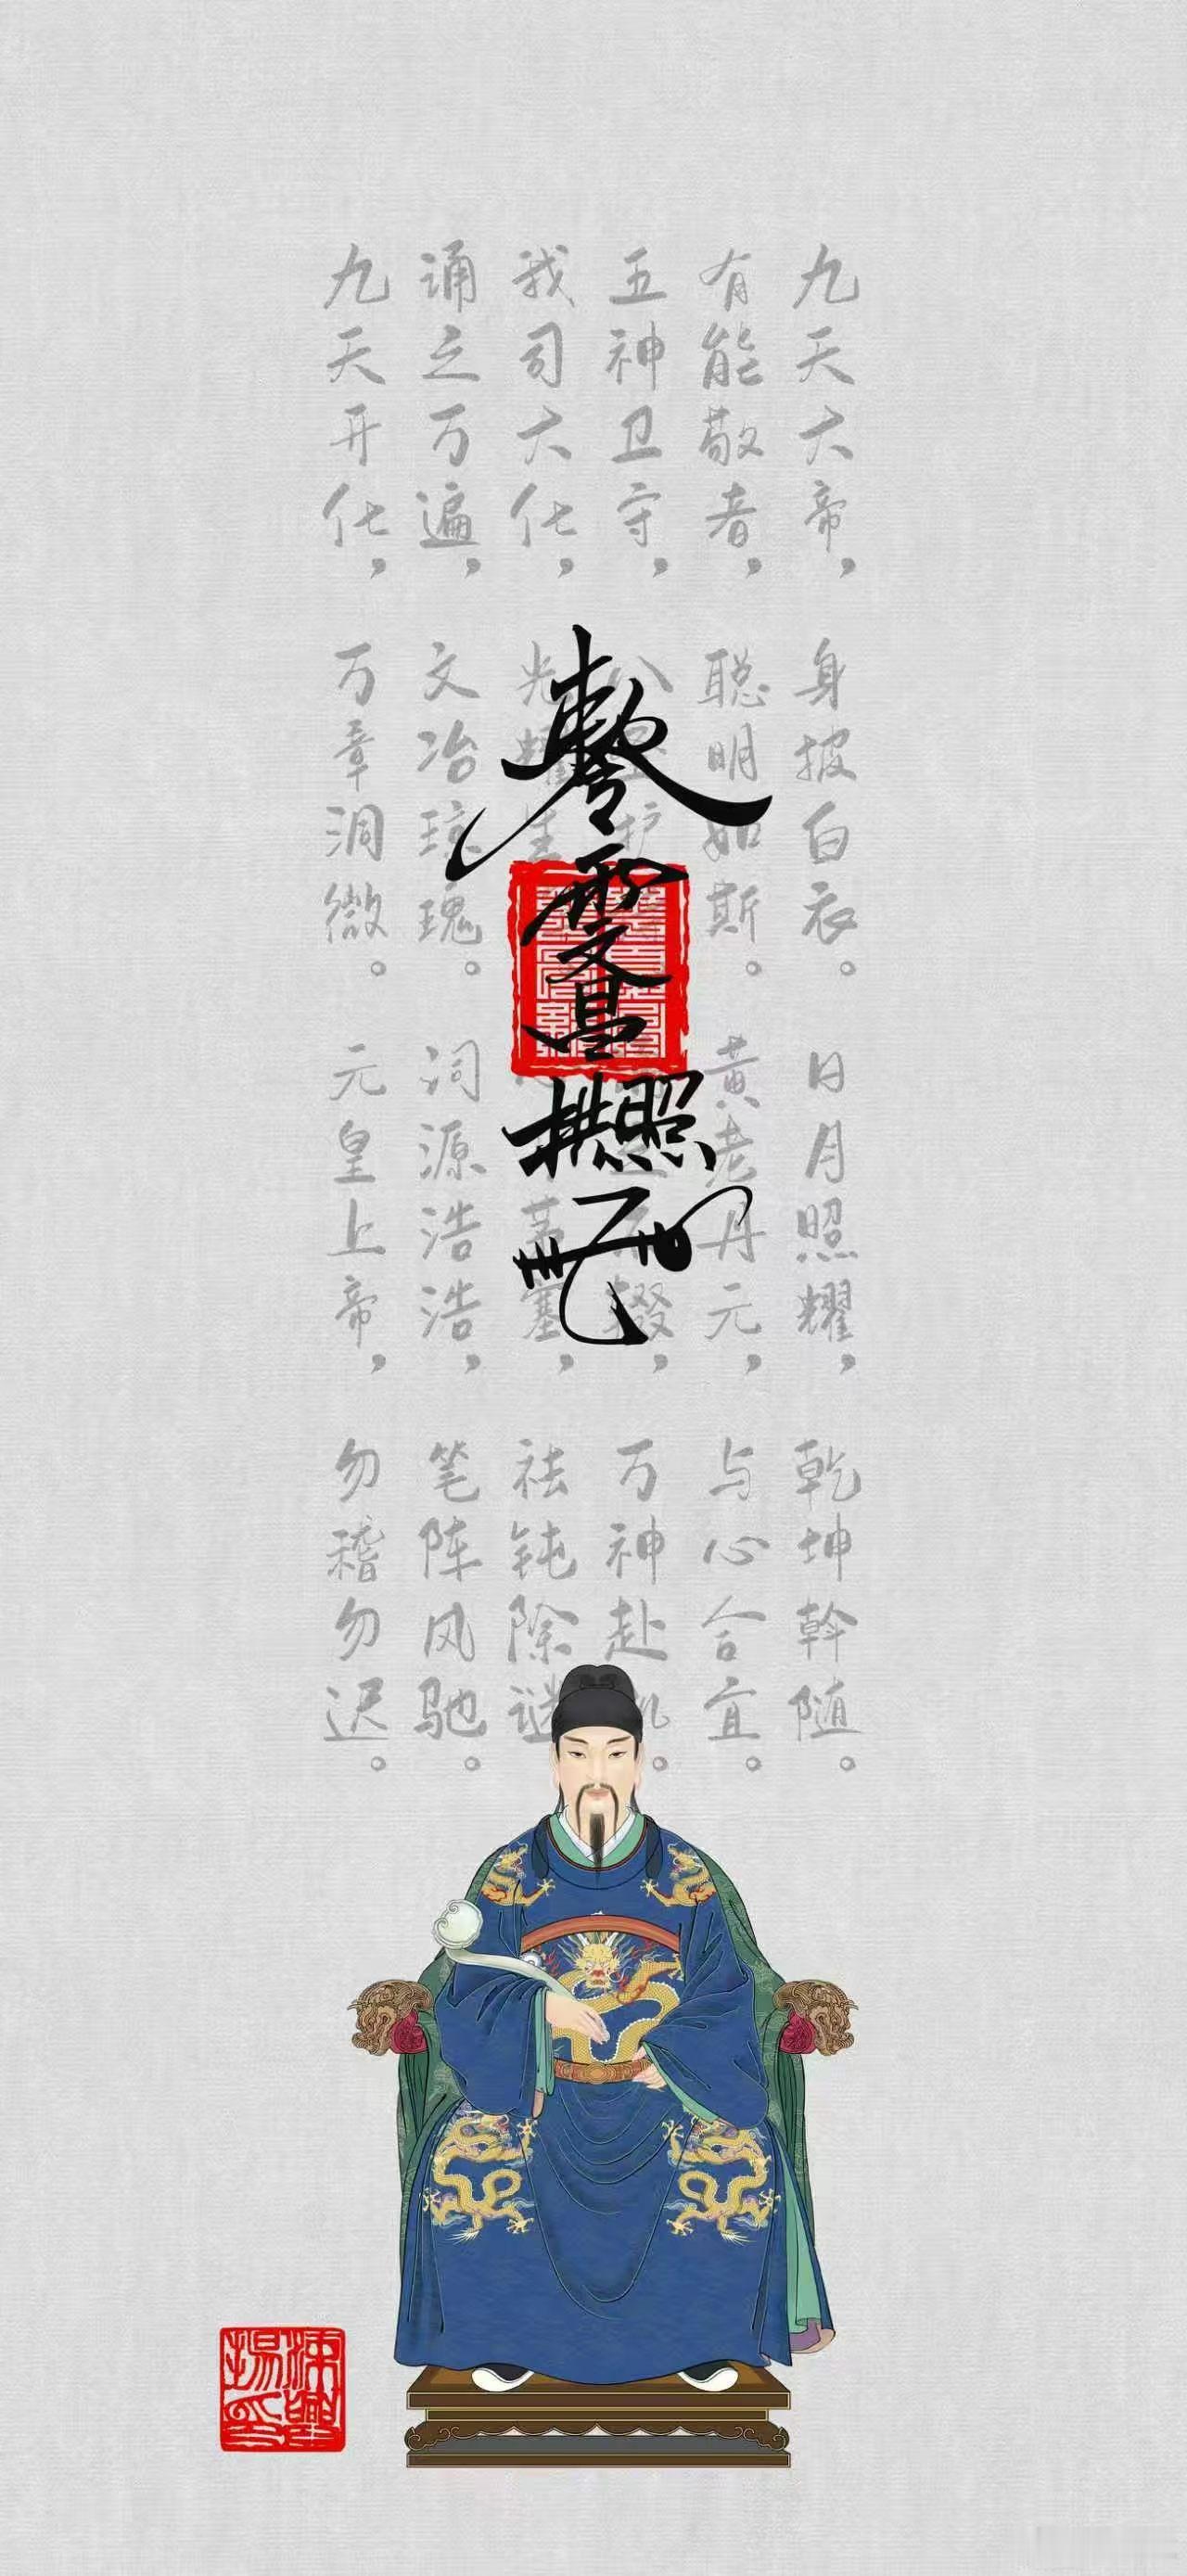 九天大帝，身披白衣。日月照耀，乾坤斡随。
有能敬者，聪明如斯。黄老丹元，与心合宜。
五神卫守，八 护 辍，万神赴 。
我司大化，光耀 塞，祛钝除谜
诵之万遍，文冶琼瑰。词源浩浩，笔阵风驰。
九天开化，万章洞微。元皇上帝，勿稽勿迟。
敕令
文昌
拱照